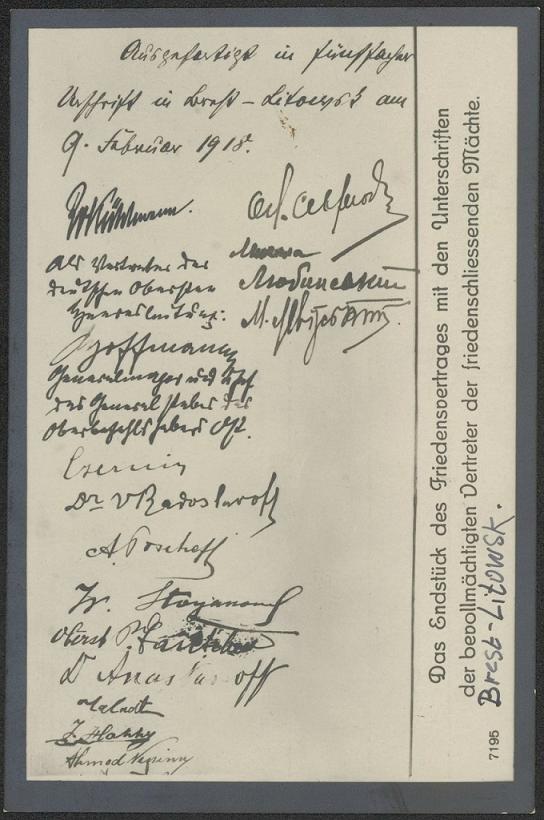 Ausgefertigt in fünffacher
Urschrift in Brest-Litowsk am
9. Februar 1918.
Kühlmann.
Als Vertreter der
deutschen Obersten
Heeresleitung:
Hoffmann
Generalmajor und Chef
des Generalstabes des
Oberbefehlshabers Ost.
Czernin
Dr VRadoslawoff
A. Toscheff
Iv. Stoyanovitch
Oberst P.
Dr Anastasoff
I. Hakky
Ahmed Nessimy
Ал.
Микола
Любинський
М.
Das Endstück des Friedensvertrages mit den Unterschriften
der bevollmächtigten Vertreter der friedenschliessenden Mächte.
Brest-Litowsk.
7195